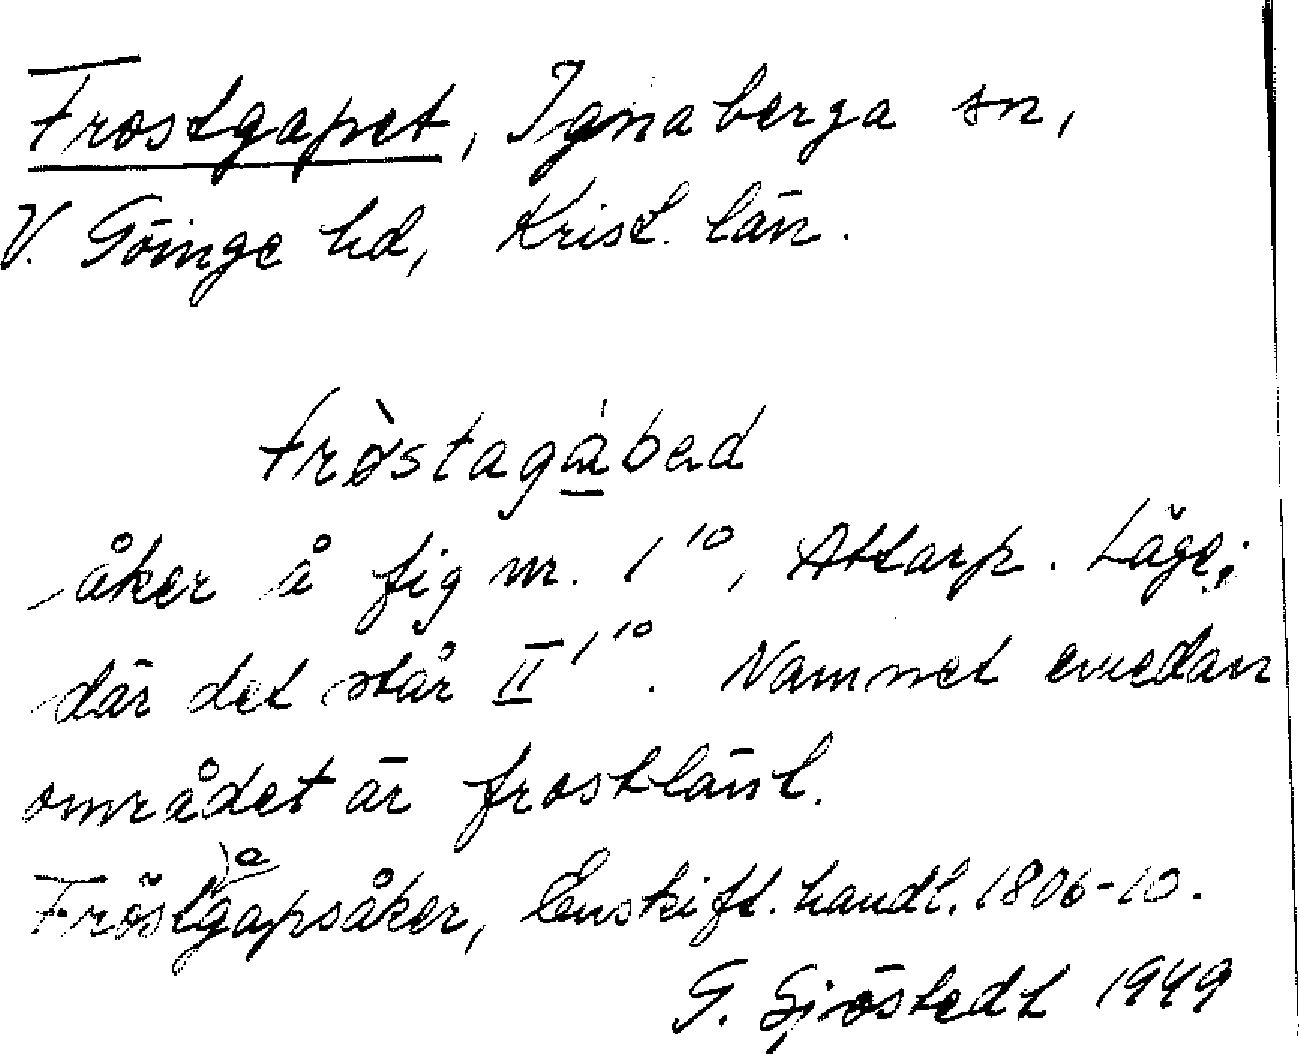 Frostgapet, Ignaberga sn,
V. Göinge hd, Krist. län.
Fröstagabed
åker å fig nr. 1¹⁰, Attarp. Läge:
där det står II¹¹⁰. Namnet emedan
området är frostlänt.
Fröstgapsåker, Enskift. handl. 1806-10.
G. Sjöstedt 1949